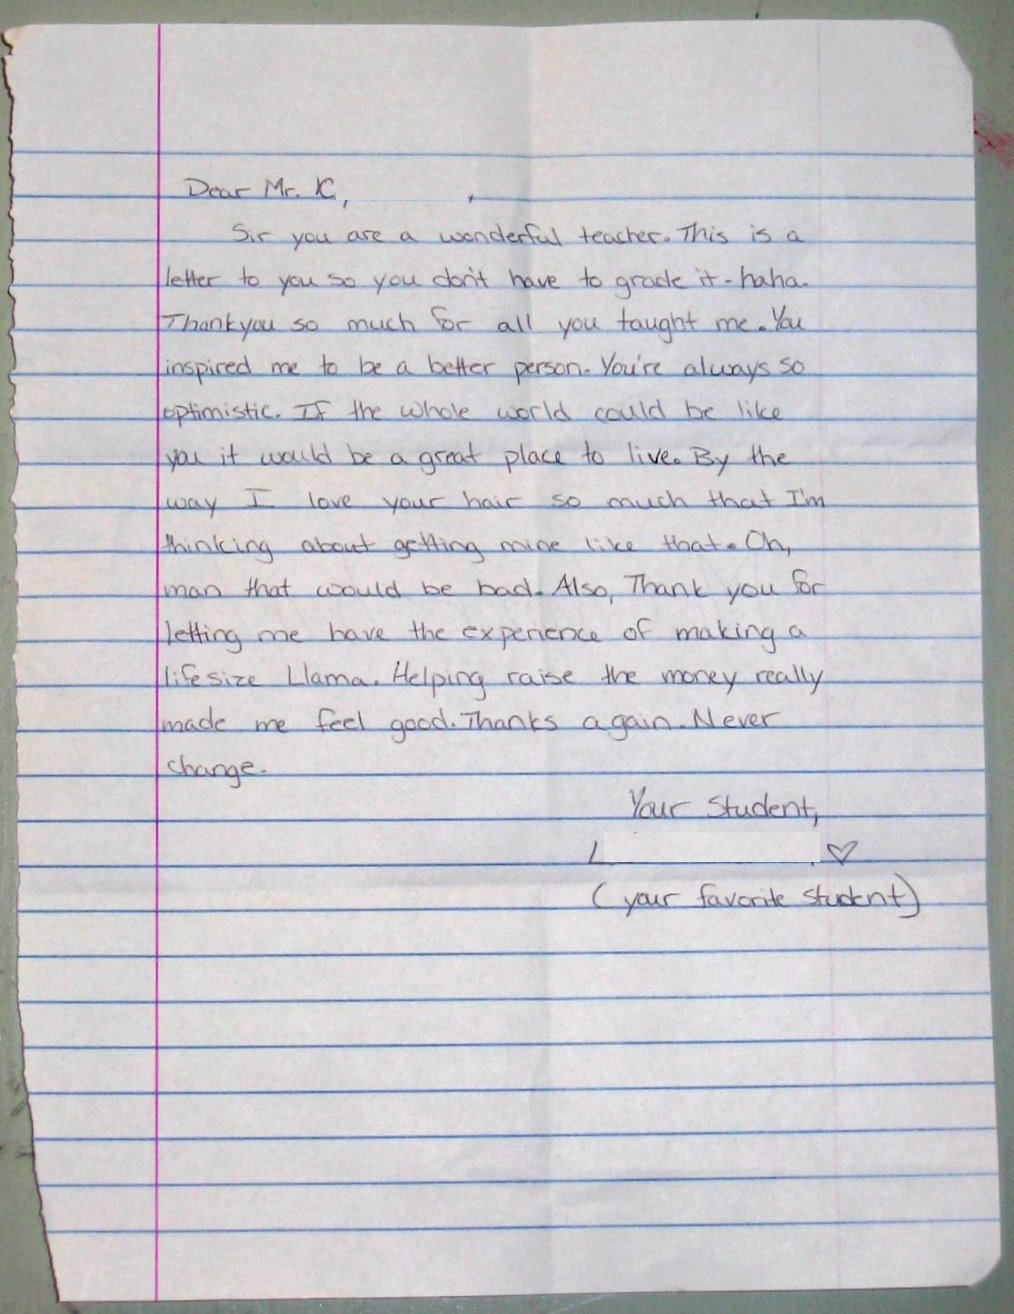 Dear Mr. K,            ,
Sir you are a wonderful teacher. This is a
letter to you so you don't have to grade it - haha.
Thankyou so much for all you taught me. You
inspired me to be a better person. You're always so
optimistic. If the whole world could be like
you it would be a great place to live. By the
way I love your hair so much that I'm
thinking about getting mine like that. Oh,
man that would be bad. Also, Thank you for
letting me have the experience of making a
lifesize Llama. Helping raise the money really
made me feel good. Thanks again. Never
change.
Your Student,
L ♡
(your favorite student)